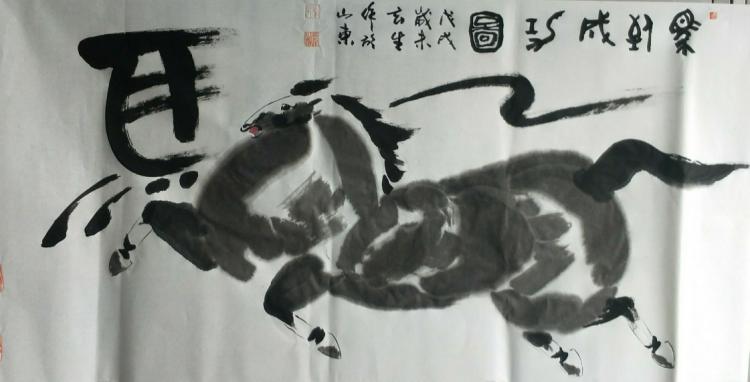 到成功圖
戊戌
歲末
玄生
作於
山東
馬